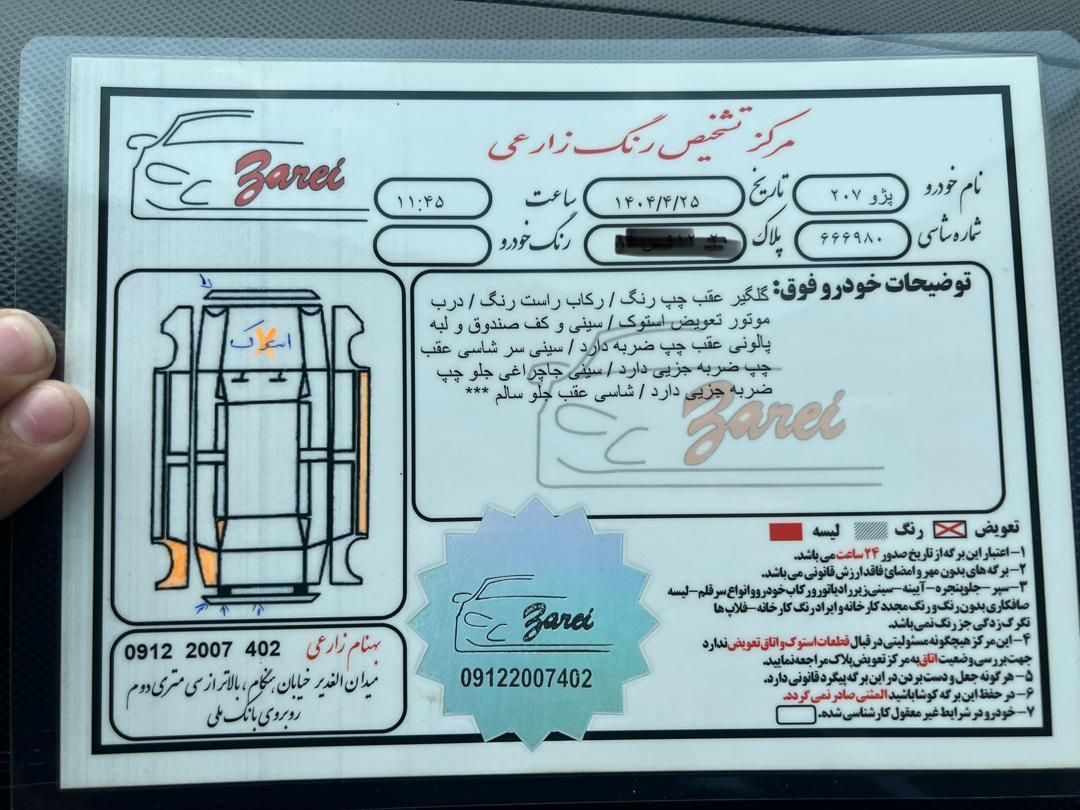 مرکز تشخیص رنگ زارعی
Zarei
نام خودرو
پژو ۲۰۷
تاریخ
۱۴۰۴/۴/۲۵
ساعت
۱۱:۴۵
شماره شاسی
۶۶۶۹۸۰
پلاک
رنگ خودرو
توضیحات خودرو فوق:
گلگیر عقب چپ رنگ / رکاب راست رنگ / درب
موتور تعویض استوک / سینی و کف صندوق و لبه
پالونی عقب چپ ضربه دارد / سینی سر شاسی عقب
چپ ضربه جزیی دارد / سینی جاچراغی جلو چپ
ضربه جزیی دارد / شاسی عقب جلو سالم ***
Zarei
استوک
تعویض
رنگ
لیسه
۱-اعتبار این برگه از تاریخ صدور ۲۴ ساعت می باشد.
۲-برگه های بدون مهر و امضائ فاقد ارزش قانونی می باشد.
۳-سپر-جلوپنجره-آیینه-سینی زیر رادیاتور و رکاب خودرو و انواع سرقلم-لیسه
صافکاری بدون رنگ و رنگ مجدد کارخانه و ایراد رنگ کارخانه-فلاپ ها
تگرک زدگی جز رنگ نمی باشد.
۴-این مرکز هیچگونه مسئولیتی در قبال قطعات استوک و اتاق تعویض ندارد
جهت بررسی وضعیت اتاق به مرکز تعویض پلاک مراجعه نمایید.
۵-هرگونه جعل و دست بردن در این برگه پیگرد قانونی دارد.
۶-در حفظ این برگه کوشا باشید المثنی صادر نمی گردد.
۷-خودرو در شرایط غیر معقول کارشناسی شده.
Zarei
09122007402
بهنام زارعی
0912 2007 402
میدان الغدیر خیابان هنگام، بالاتر از سی متری دوم
روبروی بانک ملی